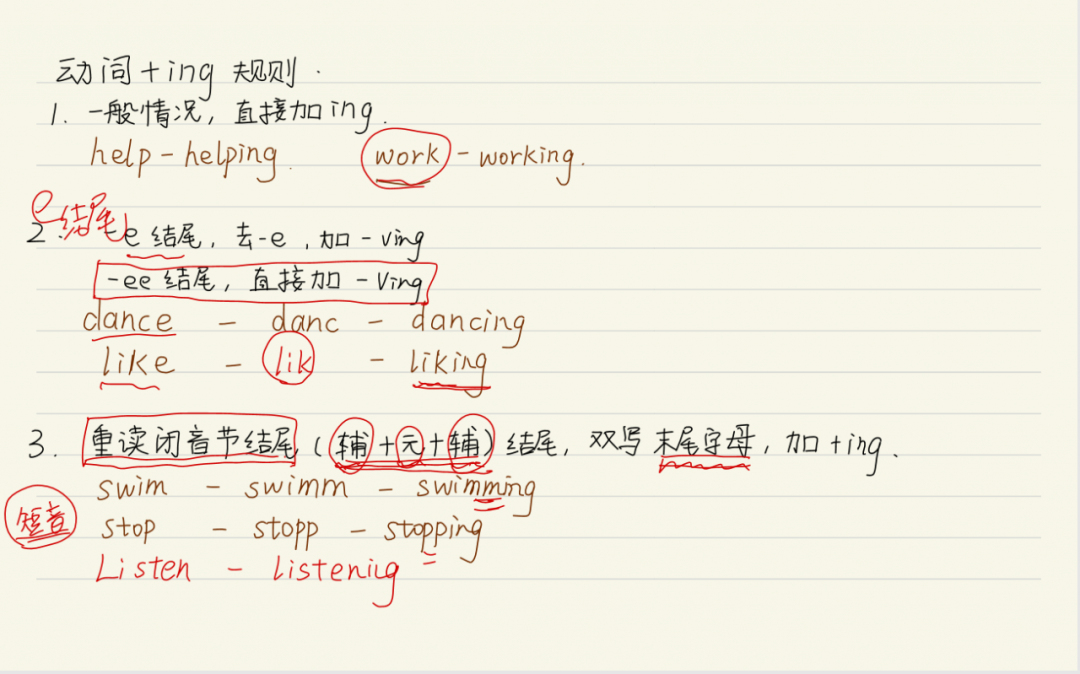 动词+ing 规则.
1. 一般情况，直接加ing.
help - helping. work - working.
e结尾
2. e结尾，去-e，加-ving
-ee结尾，直接加-Ving
dance - danc - dancing
like - lik - liking
3. 重读闭音节结尾（辅+元+辅）结尾，双写末尾字母，加+ing.
swim - swimm - swimming
短音
stop - stopp - stopping
Listen - listening